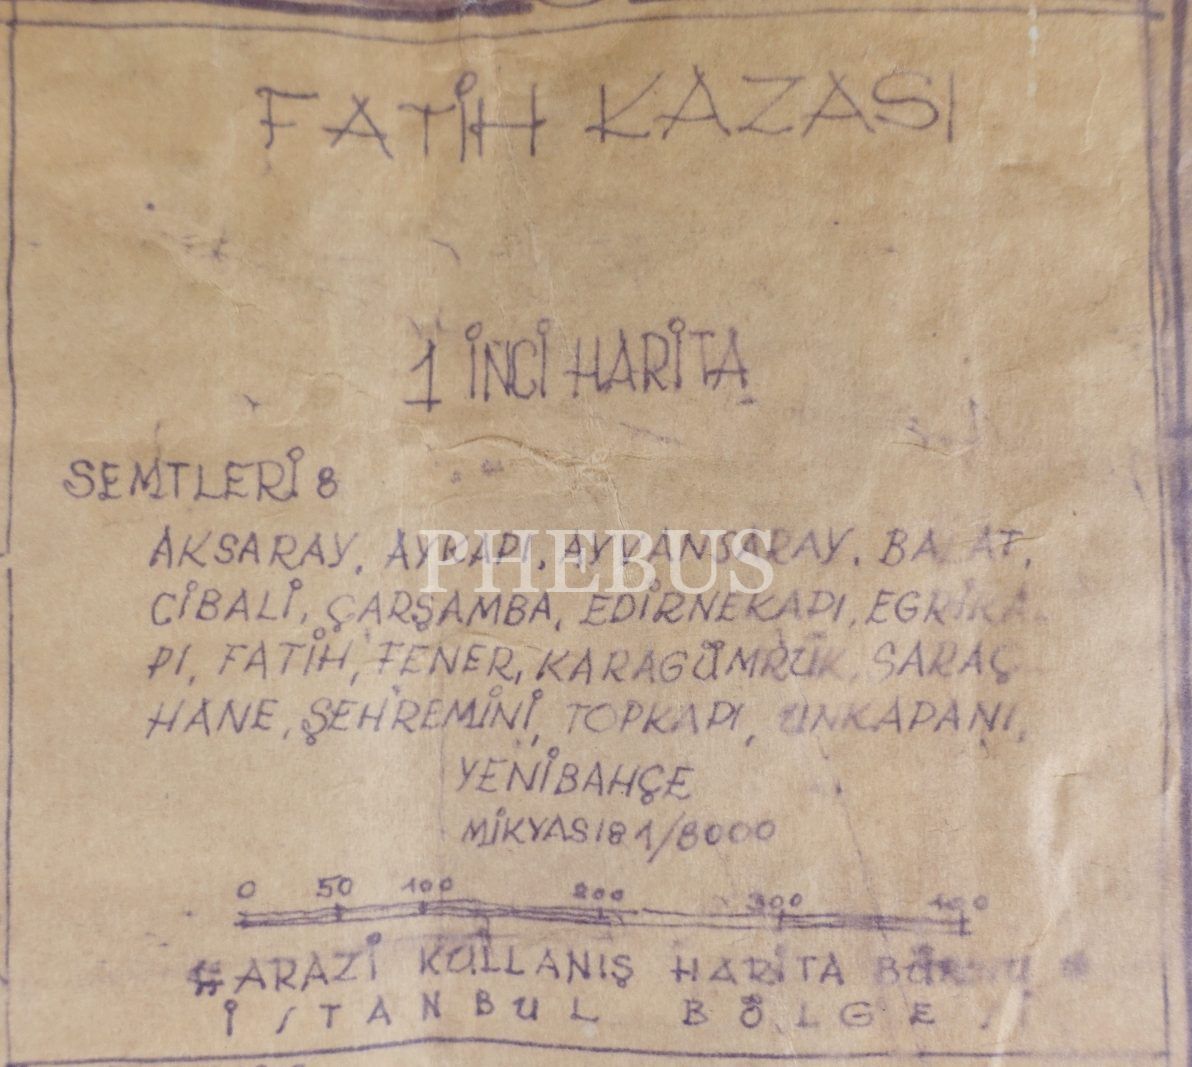 FATİH KAZASI
1 İNCİ HARİTA
SEMTLERİ :
AKSARAY, AYKAPI, AYVANSARAY, BALAT,
CİBALİ, ÇARŞAMBA, EDİRNEKAPI, EGRİKA
PI, FATİH, FENER, KARAGÜMRÜK, SARAÇ
HANE, ŞEHREMİNİ, TOPKAPI, UNKAPANI,
YENİBAHÇE
MİKYASI: 1/8000
0 50 100 200 300 400
ARAZİ KULLANIŞ HARİTA
İSTANBUL BÖLGE
PHEBUS